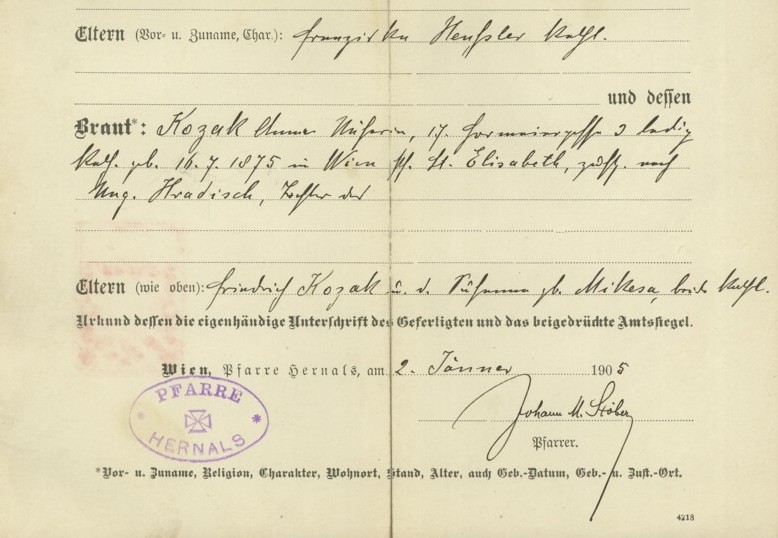 Eltern (Vor- u. Zuname, Char.): Franziska Heußler kathl.
und dessen
Braut*: Kozak Anna Näherin, 17. Hormayrgasse 3 ledig
kath. gb. 16.7.1875 in Wien Pf. St. Elisabeth, zust. nach
Ung. Hradisch, Tochter der
Eltern (wie oben): Friedrich Kozak u. d. Susanna gb. Mikesa, beide kathl.
Urkund dessen die eigenhändige Unterschrift des Gefertigten und das beigedrückte Amtssiegel.
Wien, Pfarre Hernals, am 2. Jänner 1905
PFARRE
HERNALS
Johann M. Stöber
Pfarrer.
*Vor- u. Zuname, Religion, Charakter, Wohnort, Stand, Alter, auch Geb.-Datum, Geb.- u. Zust.-Ort.
4218